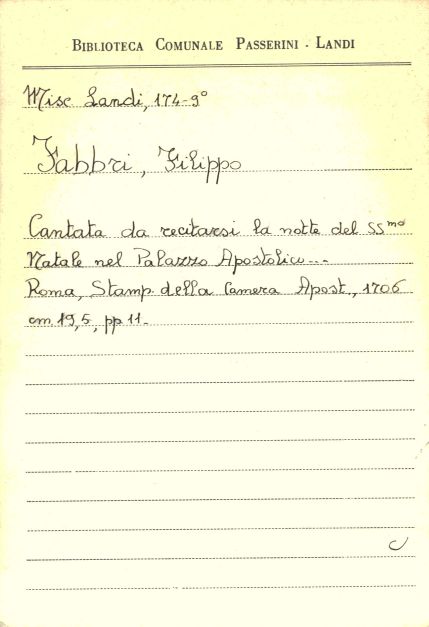 BIBLIOTECA COMUNALE PASSERINI - LANDI
Misc Landi, 174-9°
Fabbri, Filippo
Cantata da recitarsi la notte del SS.mo
Natale nel Palazzo Apostolico...
Roma, Stamp. della Camera Apost., 1706
cm. 19,5, pp 11.